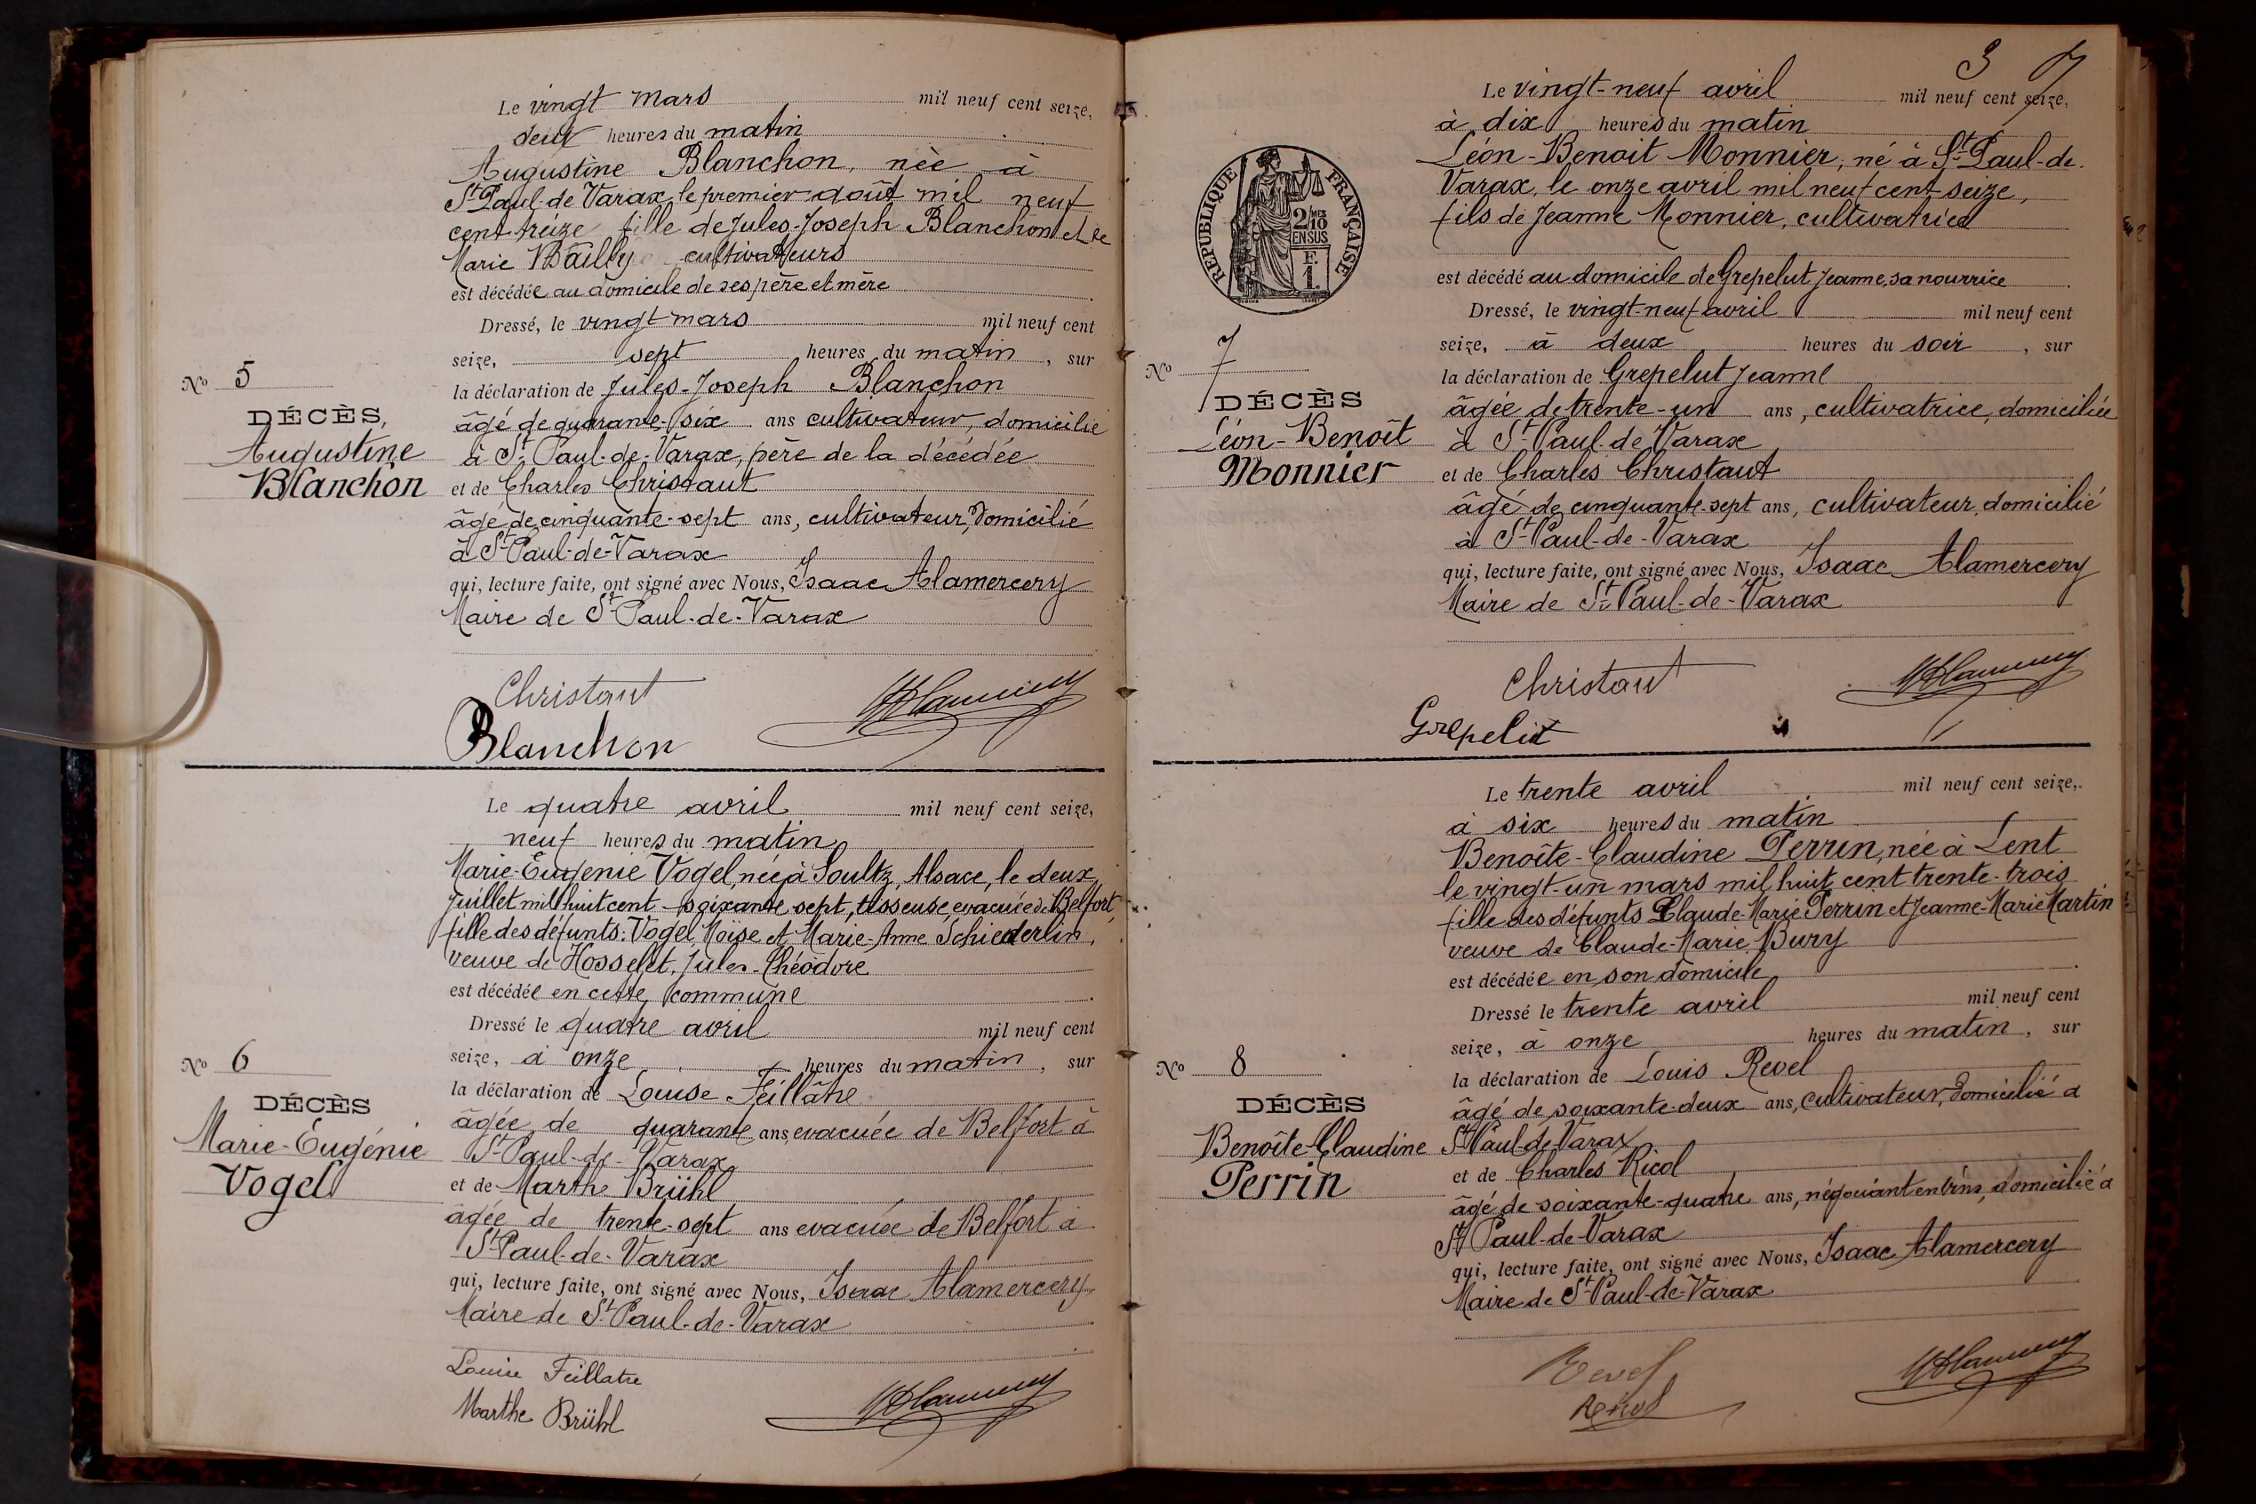 Le vingt mars mil neuf cent seize,
deux heures du matin
Augustine Blanchon, née à
St Paul-de Varax, le premier août mil neuf
cent treize fille de Jules-Joseph Blanchon et de
Marie Bailly cultivateurs
est décédée au domicile de ses père et mère
Dressé, le vingt mars mil neuf cent
seize, sept heures du matin, sur
No 5
la déclaration de Jules-Joseph Blanchon
DÉCÈS,
âgé de quarante-six ans cultivateur, domicilié
Augustine
à St Paul-de-Varax, père de la décédée
Blanchon
et de Charles Christaut
âgé de cinquante-sept ans, cultivateur, domicilié
à St Paul-de-Varax
qui, lecture faite, ont signé avec Nous, Isaac Alamercery
Maire de St Paul-de-Varax
Christaut
Blanchon
Le quatre avril mil neuf cent seize,
neuf heures du matin
Marie-Eugenie Vogel, née à Soultz, Alsace, le deux
Juillet mil huit cent-soixante sept, tisseuse, evacuée de Belfort,
fille des défunts: Vogel Moïse et Marie-Anne Schiederlin,
veuve de Hosselet, Jules-Théodore
est décédée en cette commune
Dressé le quatre avril mil neuf cent
seize, à onze heures du matin, sur
No 6
la déclaration de Louise Feillâtre
DÉCÈS
âgée de quarante ans evacuée de Belfort à
Marie-Eugénie
St Paul-de-Varax
Vogel
et de Marthe Brühl
âgée de trente-sept ans evacuée de Belfort à
St Paul-de-Varax
qui, lecture faite, ont signé avec Nous, Isaac Alamercery
Maire de St Paul-de-Varax
Louise Feillatre
Marthe Brühl
3
Le vingt-neuf avril mil neuf cent seize,
à dix heures du matin
Léon-Benoit Monnier, né à St Paul-de-
Varax, le onze avril mil neuf cent seize,
fils de Jeanne Monnier, cultivatrice
RÉPUBLIQUE FRANÇAISE
2/10MES
EN SUS
F.
1.
est décédé au domicile de Grepelut Jeanne, sa nourrice
Dressé, le vingt-neuf avril mil neuf cent
seize, à deux heures du soir, sur
No 7
la déclaration de Grepelut Jeanne
DÉCÈS
âgée de trente-un ans, cultivatrice, domiciliée
Léon-Benoît
à St Paul-de Varax
Monnier
et de Charles Christaut
âgé de cinquante-sept ans, cultivateur, domicilié
à St Paul-de-Varax
qui, lecture faite, ont signé avec Nous, Isaac Alamercery
Maire de St Paul-de-Varax
Christaut
Grepelut
Le trente avril mil neuf cent seize,
à six heures du matin
Benoîte-Claudine Perrin, née à Lent
le vingt-un mars mil huit cent trente-trois
fille des défunts Claude-Marie Perrin et Jeanne-Marie Martin
veuve de Claude-Marie Bury
est décédée en son domicile
Dressé le trente avril mil neuf cent
seize, à onze heures du matin, sur
No 8
la déclaration de Louis Revel
DÉCÈS
âgé de soixante-deux ans, cultivateur, domicilié à
Benoîte-Claudine
St Paul-de Varax
Perrin
et de Charles Ricol
âgé de soixante-quatre ans, négociant en vins, domicilié à
St Paul-de-Varax
qui, lecture faite, ont signé avec Nous, Isaac Alamercery
Maire de St Paul-de-Varax
Revel
Ricol